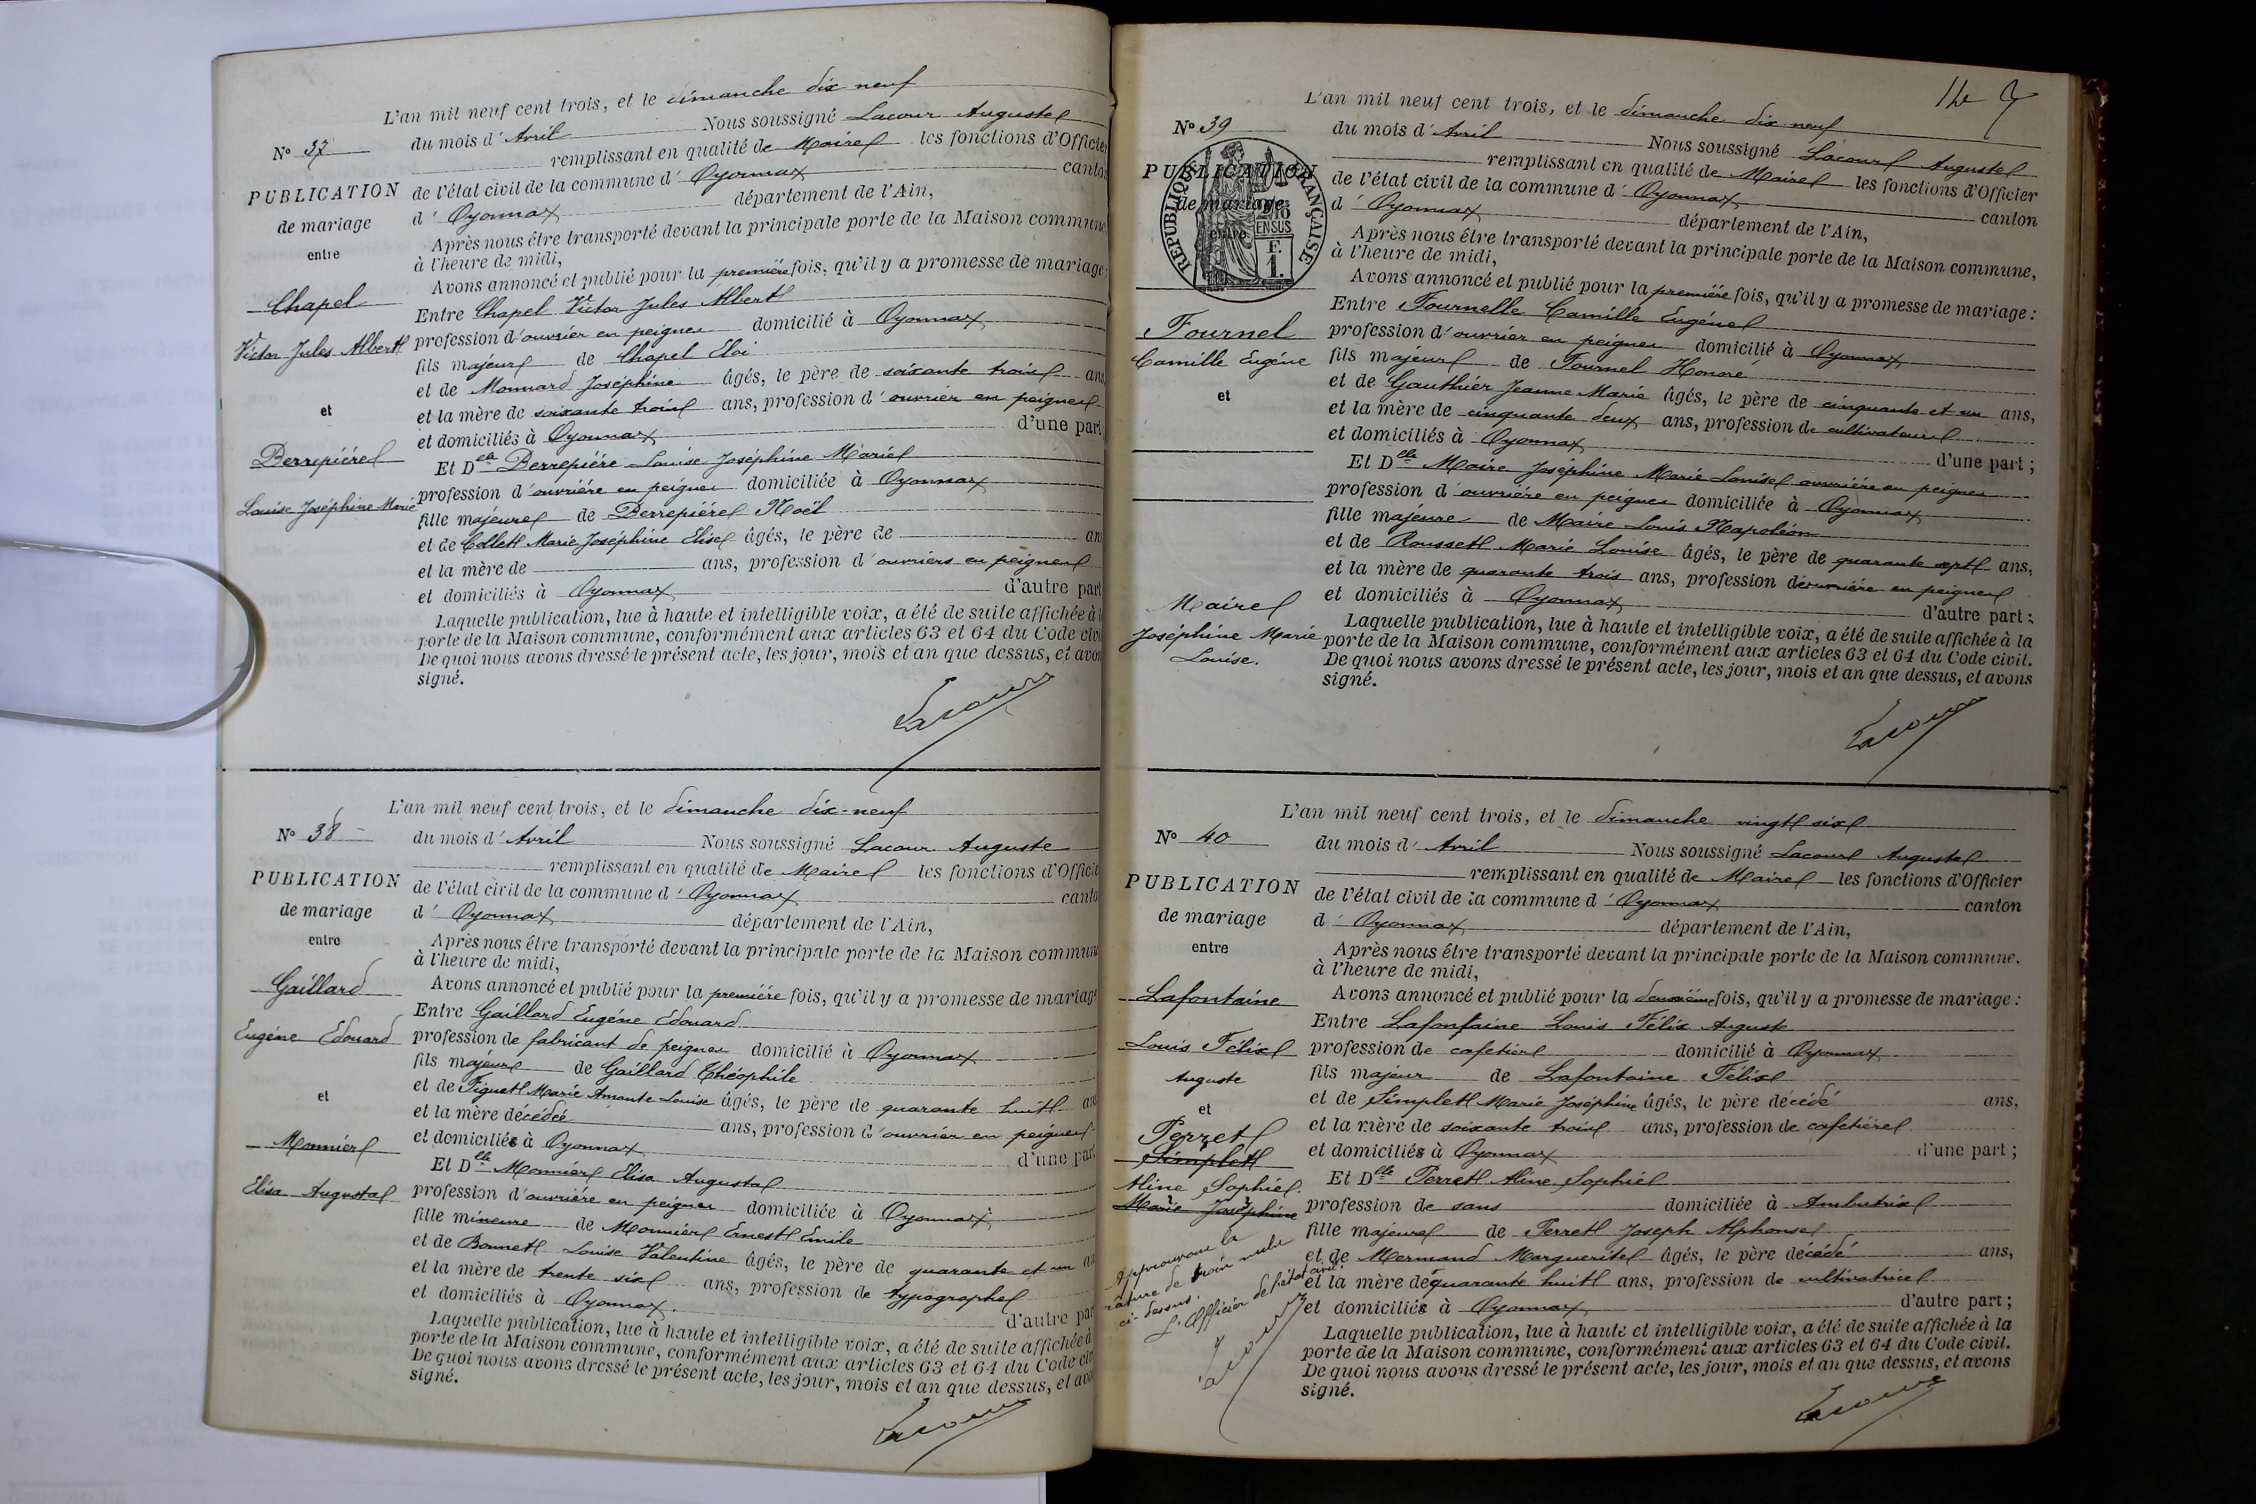 L'an mil neuf cent trois, et le dimanche dix neuf
N° 37 du mois d'Avril Nous soussigné Lacour Auguste
remplissant en qualité de Maire les fonctions d'Officier
PUBLICATION de l'état civil de la commune d'Oyonnax canton
de mariage d'Oyonnax département de l'Ain,
entre Après nous être transporté devant la principale porte de la Maison commune
à l'heure de midi,
Avons annoncé et publié pour la première fois, qu'il y a promesse de mariage:
Chapel Entre Chapel Victor Jules Albert
Victor Jules Albert profession d'ouvrier en peignes domicilié à Oyonnax
fils majeur de Chapel Eloi
et de Monnard Joséphine âgés, le père de soixante trois ans
et et la mère de soixante trois ans, profession d'ouvrier en peignes
et domiciliés à Oyonnax d'une part
Berrepière Et Delle Berrepière Louise Joséphine Marie
Louise Joséphine Marie profession d'ouvrière en peignes domiciliée à Oyonnax
fille majeure de Berrepière Noël
et de Collet Marie Joséphine Elise âgés, le père de ans
et la mère de ans, profession d'ouvriers en peignes
et domiciliés à Oyonnax d'autre part
Laquelle publication, lue à haute et intelligible voix, a été de suite affichée à
porte de la Maison commune, conformément aux articles 63 et 64 du Code civil
De quoi nous avons dressé le présent acte, les jour, mois et an que dessus, et avons
signé.
Lacour
L'an mil neuf cent trois, et le dimanche dix-neuf
N° 38 du mois d'Avril Nous soussigné Lacour Auguste
remplissant en qualité de Maire les fonctions d'Officier
PUBLICATION de l'état civil de la commune d'Oyonnax canton
de mariage d'Oyonnax département de l'Ain,
entre Après nous être transporté devant la principale porte de la Maison commune
à l'heure de midi,
Avons annoncé et publié pour la première fois, qu'il y a promesse de mariage
Gaillard Entre Gaillard Eugène Edouard
Eugène Edouard profession de fabricant de peignes domicilié à Oyonnax
fils majeur de Gaillard Théophile
et de Piguet Marie Amante Louise âgés, le père de quarante huit ans
et et la mère décédée ans, profession d'ouvrier en peignes
et domiciliés à Oyonnax d'une part
Monnier Et Delle Monnier Elisa Augusta
Elisa Augusta profession d'ouvrière en peignes domiciliée à Oyonnax
fille mineure de Monnier Ernest Emile
et de Bonnet Louise Valentine âgés, le père de quarante et un ans
et la mère de trente six ans, profession de typographe
et domiciliés à Oyonnax. d'autre part
Laquelle publication, lue à haute et intelligible voix, a été de suite affichée à
porte de la Maison commune, conformément aux articles 63 et 64 du Code civ
De quoi nous avons dressé le présent acte, les jour, mois et an que dessus, et avons
signé.
Lacour
L'an mil neuf cent trois, et le dimanche dix neuf
N° 39 du mois d'Avril Nous soussigné Lacour Auguste
remplissant en qualité de Maire les fonctions d'Officier
PUBLICATION de l'état civil de la commune d'Oyonnax canton
de mariage d'Oyonnax département de l'Ain,
entre Après nous être transporté devant la principale porte de la Maison commune,
RÉPUBLIQUE FRANÇAISE
F. 1.
à l'heure de midi,
Avons annoncé et publié pour la première fois, qu'il y a promesse de mariage:
Entre Fournelle Camille Eugène
Fournel profession d'ouvrier en peignes domicilié à Oyonnax
Camille Eugène fils majeur de Fournel Honoré
et de Gauthier Jeanne Marie âgés, le père de cinquante et un ans,
et et la mère de cinquante deux ans, profession de cultivateurs
et domiciliés à Oyonnax d'une part;
Et Delle Maire Joséphine Marie Louise ouvrière en peignes
profession d'ouvrière en peignes domiciliée à Oyonnax
fille majeure de Maire Louis Napoléon
et de Rousset Marie Louise âgés, le père de quarante sept ans,
et la mère de quarante trois ans, profession d'ouvrière en peignes
Maire et domiciliés à Oyonnax d'autre part:
Joséphine Marie Laquelle publication, lue à haute et intelligible voix, a été de suite affichée à la
Louise. porte de la Maison commune, conformément aux articles 63 et 64 du Code civil.
De quoi nous avons dressé le présent acte, les jour, mois et an que dessus, et avons
signé.
Lacour
L'an mil neuf cent trois, et le dimanche vingt six
N° 40 du mois d'Avril Nous soussigné Lacour Auguste
remplissant en qualité de Maire les fonctions d'Officier
PUBLICATION de l'état civil de la commune d'Oyonnax canton
de mariage d'Oyonnax département de l'Ain,
entre Après nous être transporté devant la principale porte de la Maison commune.
à l'heure de midi,
Lafontaine Avons annoncé et publié pour la deuxième fois, qu'il y a promesse de mariage:
Entre Lafontaine Louis Félix Auguste
Louis Félix profession de cafetier domicilié à Oyonnax
Auguste fils majeur de Lafontaine Félix
et et de Simplet Marie Joséphine âgés, le père décédé ans,
Perret et la mère de soixante trois ans, profession de cafetière
Simplet et domiciliés à Oyonnax d'une part;
Aline Sophie. Et Delle Perret Aline Sophie
Marie Joséphine profession de sans domiciliée à Ambutrix
fille majeure de Perret Joseph Alphonse
et de Mermand Marguerite âgés, le père décédé ans,
et la mère de quarante huit ans, profession de cultivatrice
et domiciliés à Oyonnax d'autre part;
Approuvons la
rature de trois mots
ci-dessus.
L'Officier de l'état civil.
Lacour
Laquelle publication, lue à haute et intelligible voix, a été de suite affichée à la
porte de la Maison commune, conformément aux articles 63 et 64 du Code civil.
De quoi nous avons dressé le présent acte, les jour, mois et an que dessus, et avons
signé.
Lacour